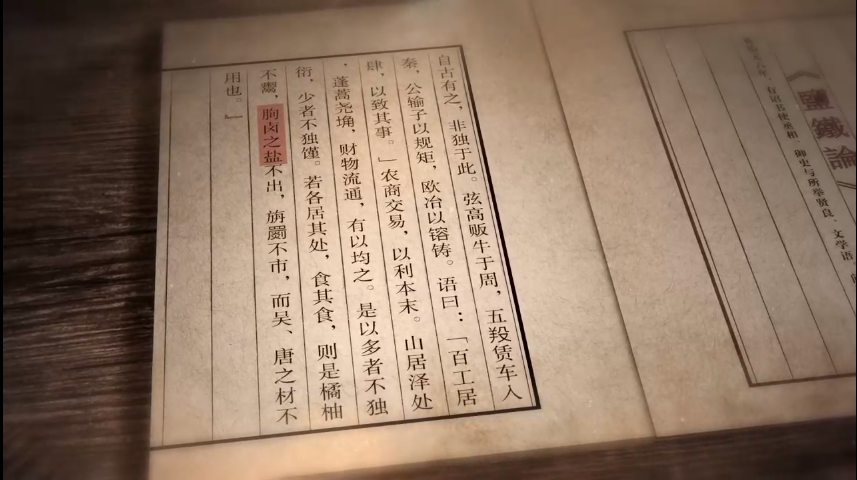 《鹽鐵論》
有诏书使丞相、御史与所举贤良、文学语
自古有之，非独于此。弦高贩牛于周，五羖赁车入
秦，公输子以规矩，欧冶以镕铸。语曰：「百工居
肆，以致其事。」农商交易，以利本末。山居泽处
，蓬蒿尧埆，财物流通，有以均之。是以多者不独
衍，少者不独馑。若各居其处，食其食，则是橘柚
不鬻，朐卤之盐不出，旃罽不市，而吴、唐之材不
用也。」